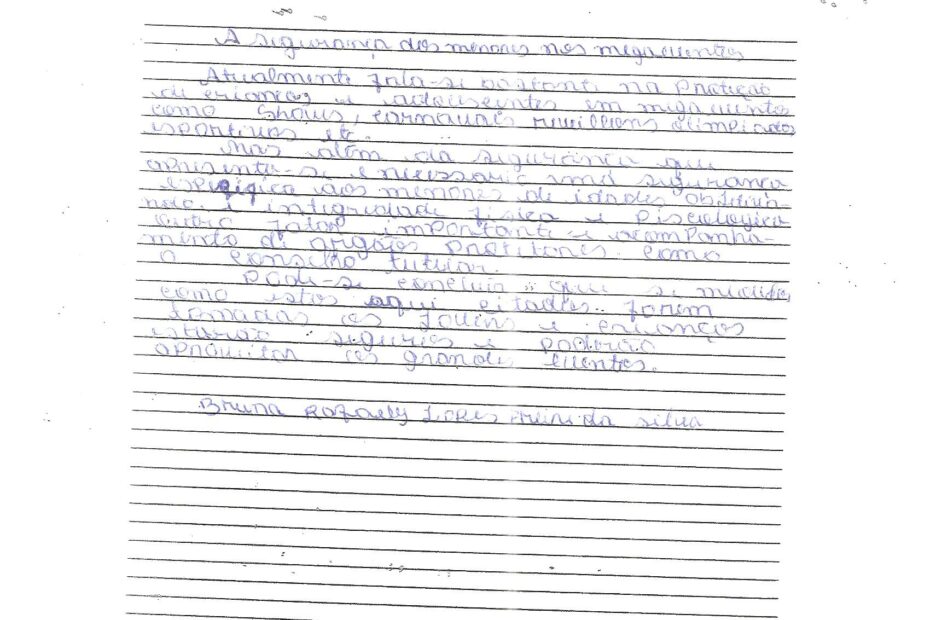 A segurança dos menores nos megaeventos
Atualmente fala-se bastante na proteção
de crianças e adolescentes em mega eventos
como Shows, carnavais, reveillons olimpiadas
esportivas etc.
Mas além da segurança que
apresenta-se é necessario uma segurança
especifica aos menores de idades objetivan-
do a integridade fisica e piscologica
outro fator importante e acompanha-
mento de orgãos protetores como
o conselho tutelar.
Pode-se concluir que se medidas
como estas aqui citadas forem
tomadas os jovens e crianças
estarão seguros e poderão
aproveitar os grandes eventos.
Bruna Rafaely Lopes da silva